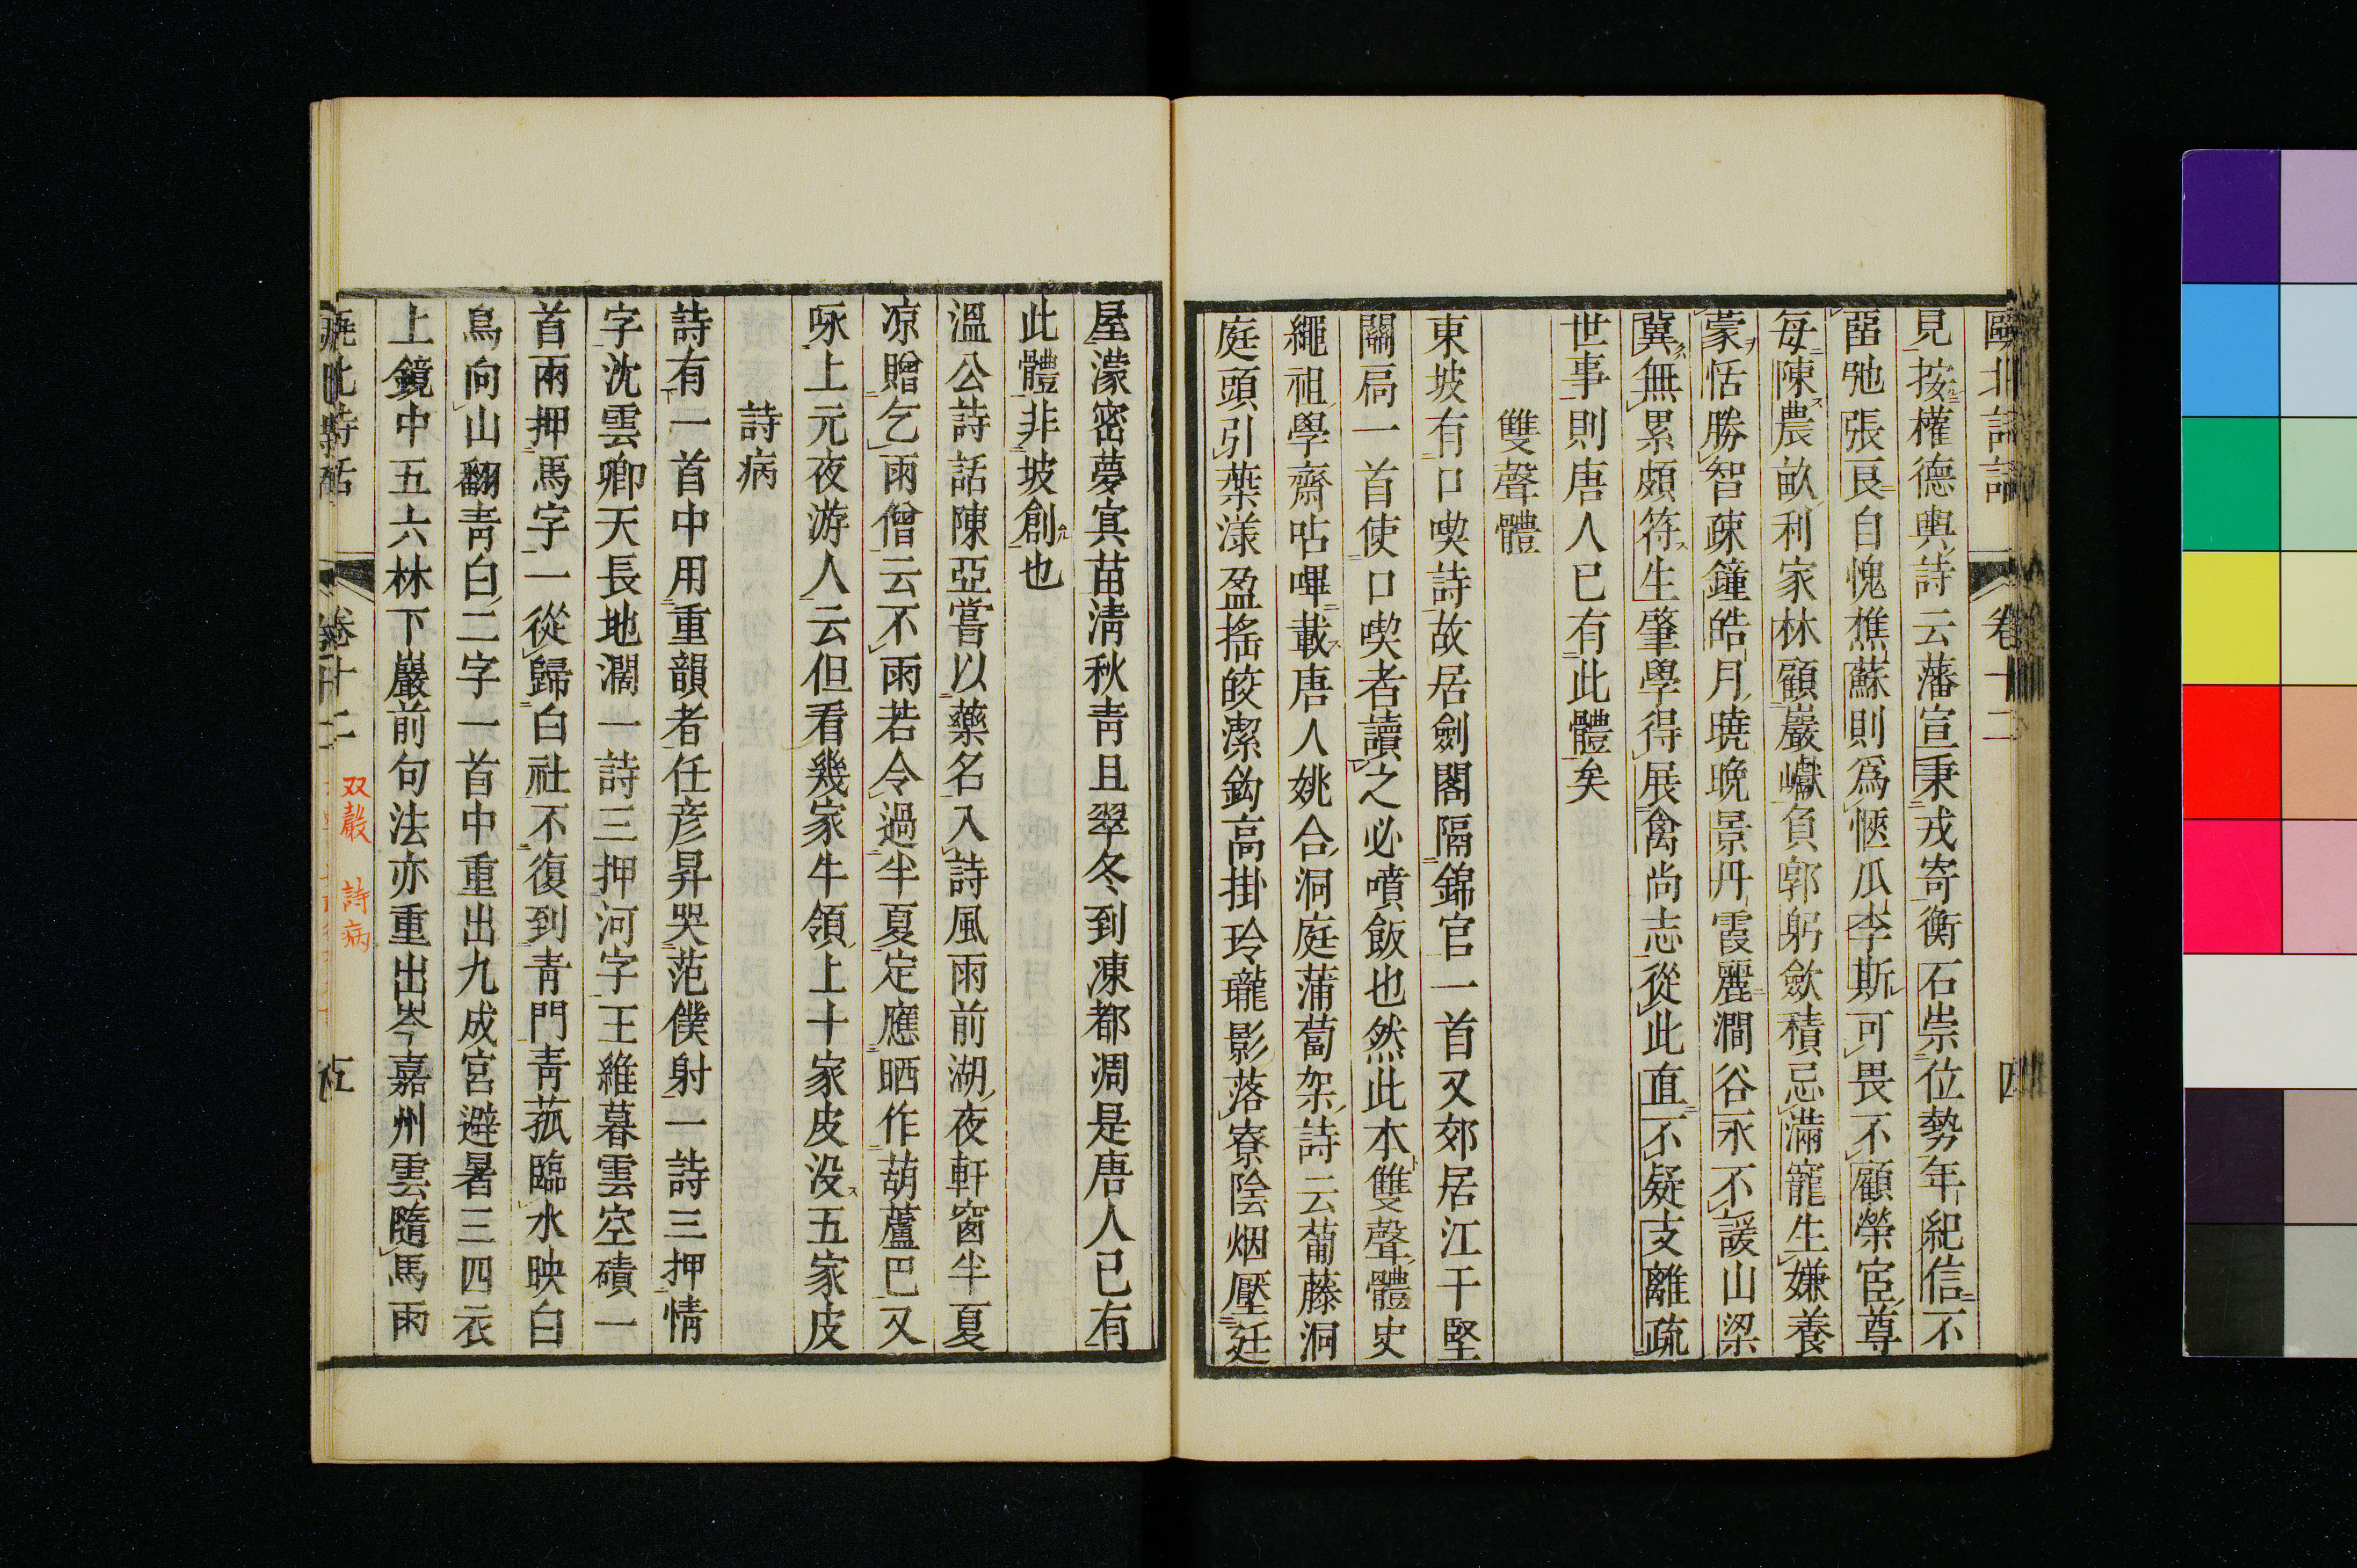 甌北詩話
卷十二
四
見按權德輿詩云藩宣秉戎寄衡石崇位勢年紀信不
畱弛張良自愧樵蘇則爲愜瓜李斯可畏不顧榮宦尊
每陳農畝利家林顧巖巘負郭躬歛積忌滿寵生嫌養
蒙恬勝智疎鐘皓月曉晩景丹霞麗澗谷永不諼山梁
冀無累頗符生肇學得展禽尚志從此直不疑支離疏
世事則唐人已有此體矣
雙聲體
東坡有口喫詩故居劍閣隔錦官一首又郊居江干堅
關扃一首使口喫者讀之必噴飯也然此本雙聲體史
繩祖學齋呫嗶載唐人姚合洞庭蒲萄架詩云葡藤洞
庭頭引葉漾盈搖皎潔鈎高掛玲瓏影落寮陰烟壓廷
屋濛密夢寘苗淸秋靑且翠冬到凍都凋是唐人已有
此體非坡創也
溫公詩話陳亞嘗以藥名入詩風雨前湖夜軒窗半夏
凉贈乞雨僧云不雨若令過半夏定應晒作葫蘆巴又
咏上元夜游人云但看幾家牛領上十家皮没五家皮
詩病
詩有一首中用重韻者任彦昇哭范僕射一詩三押情
字沈雲卿天長地濶一詩三押河字王維暮雲空磧一
首兩押馬字一從歸白社不復到靑門靑菰臨水映白
鳥向山翻靑白二字一首中重出九成宮避暑三四衣
上鏡中五六林下巖前句法亦重出岑嘉州雲隨馬雨
甌北詩話
卷十二
双声 詩病
五